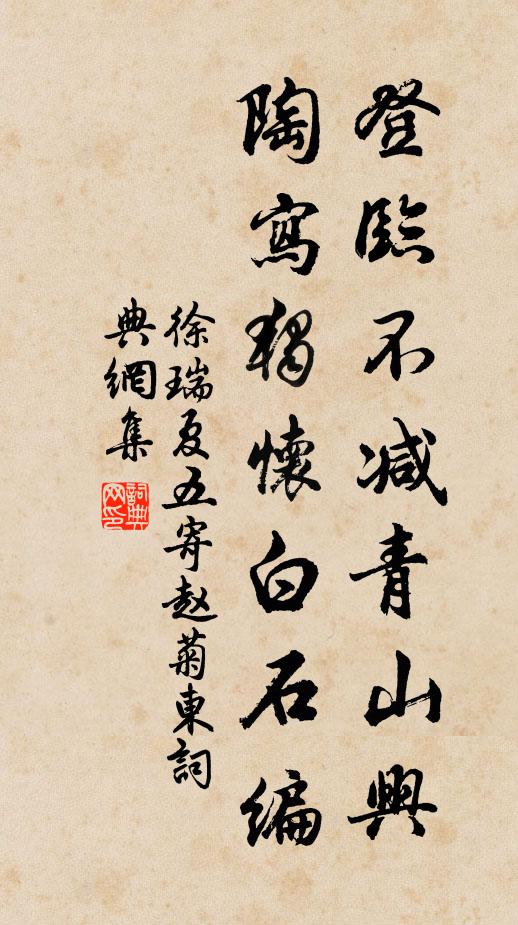 登臨不減青山興
陶寫獨懷白石編
徐瑞夏五寄赵菊東詞
典網集
詞典網印